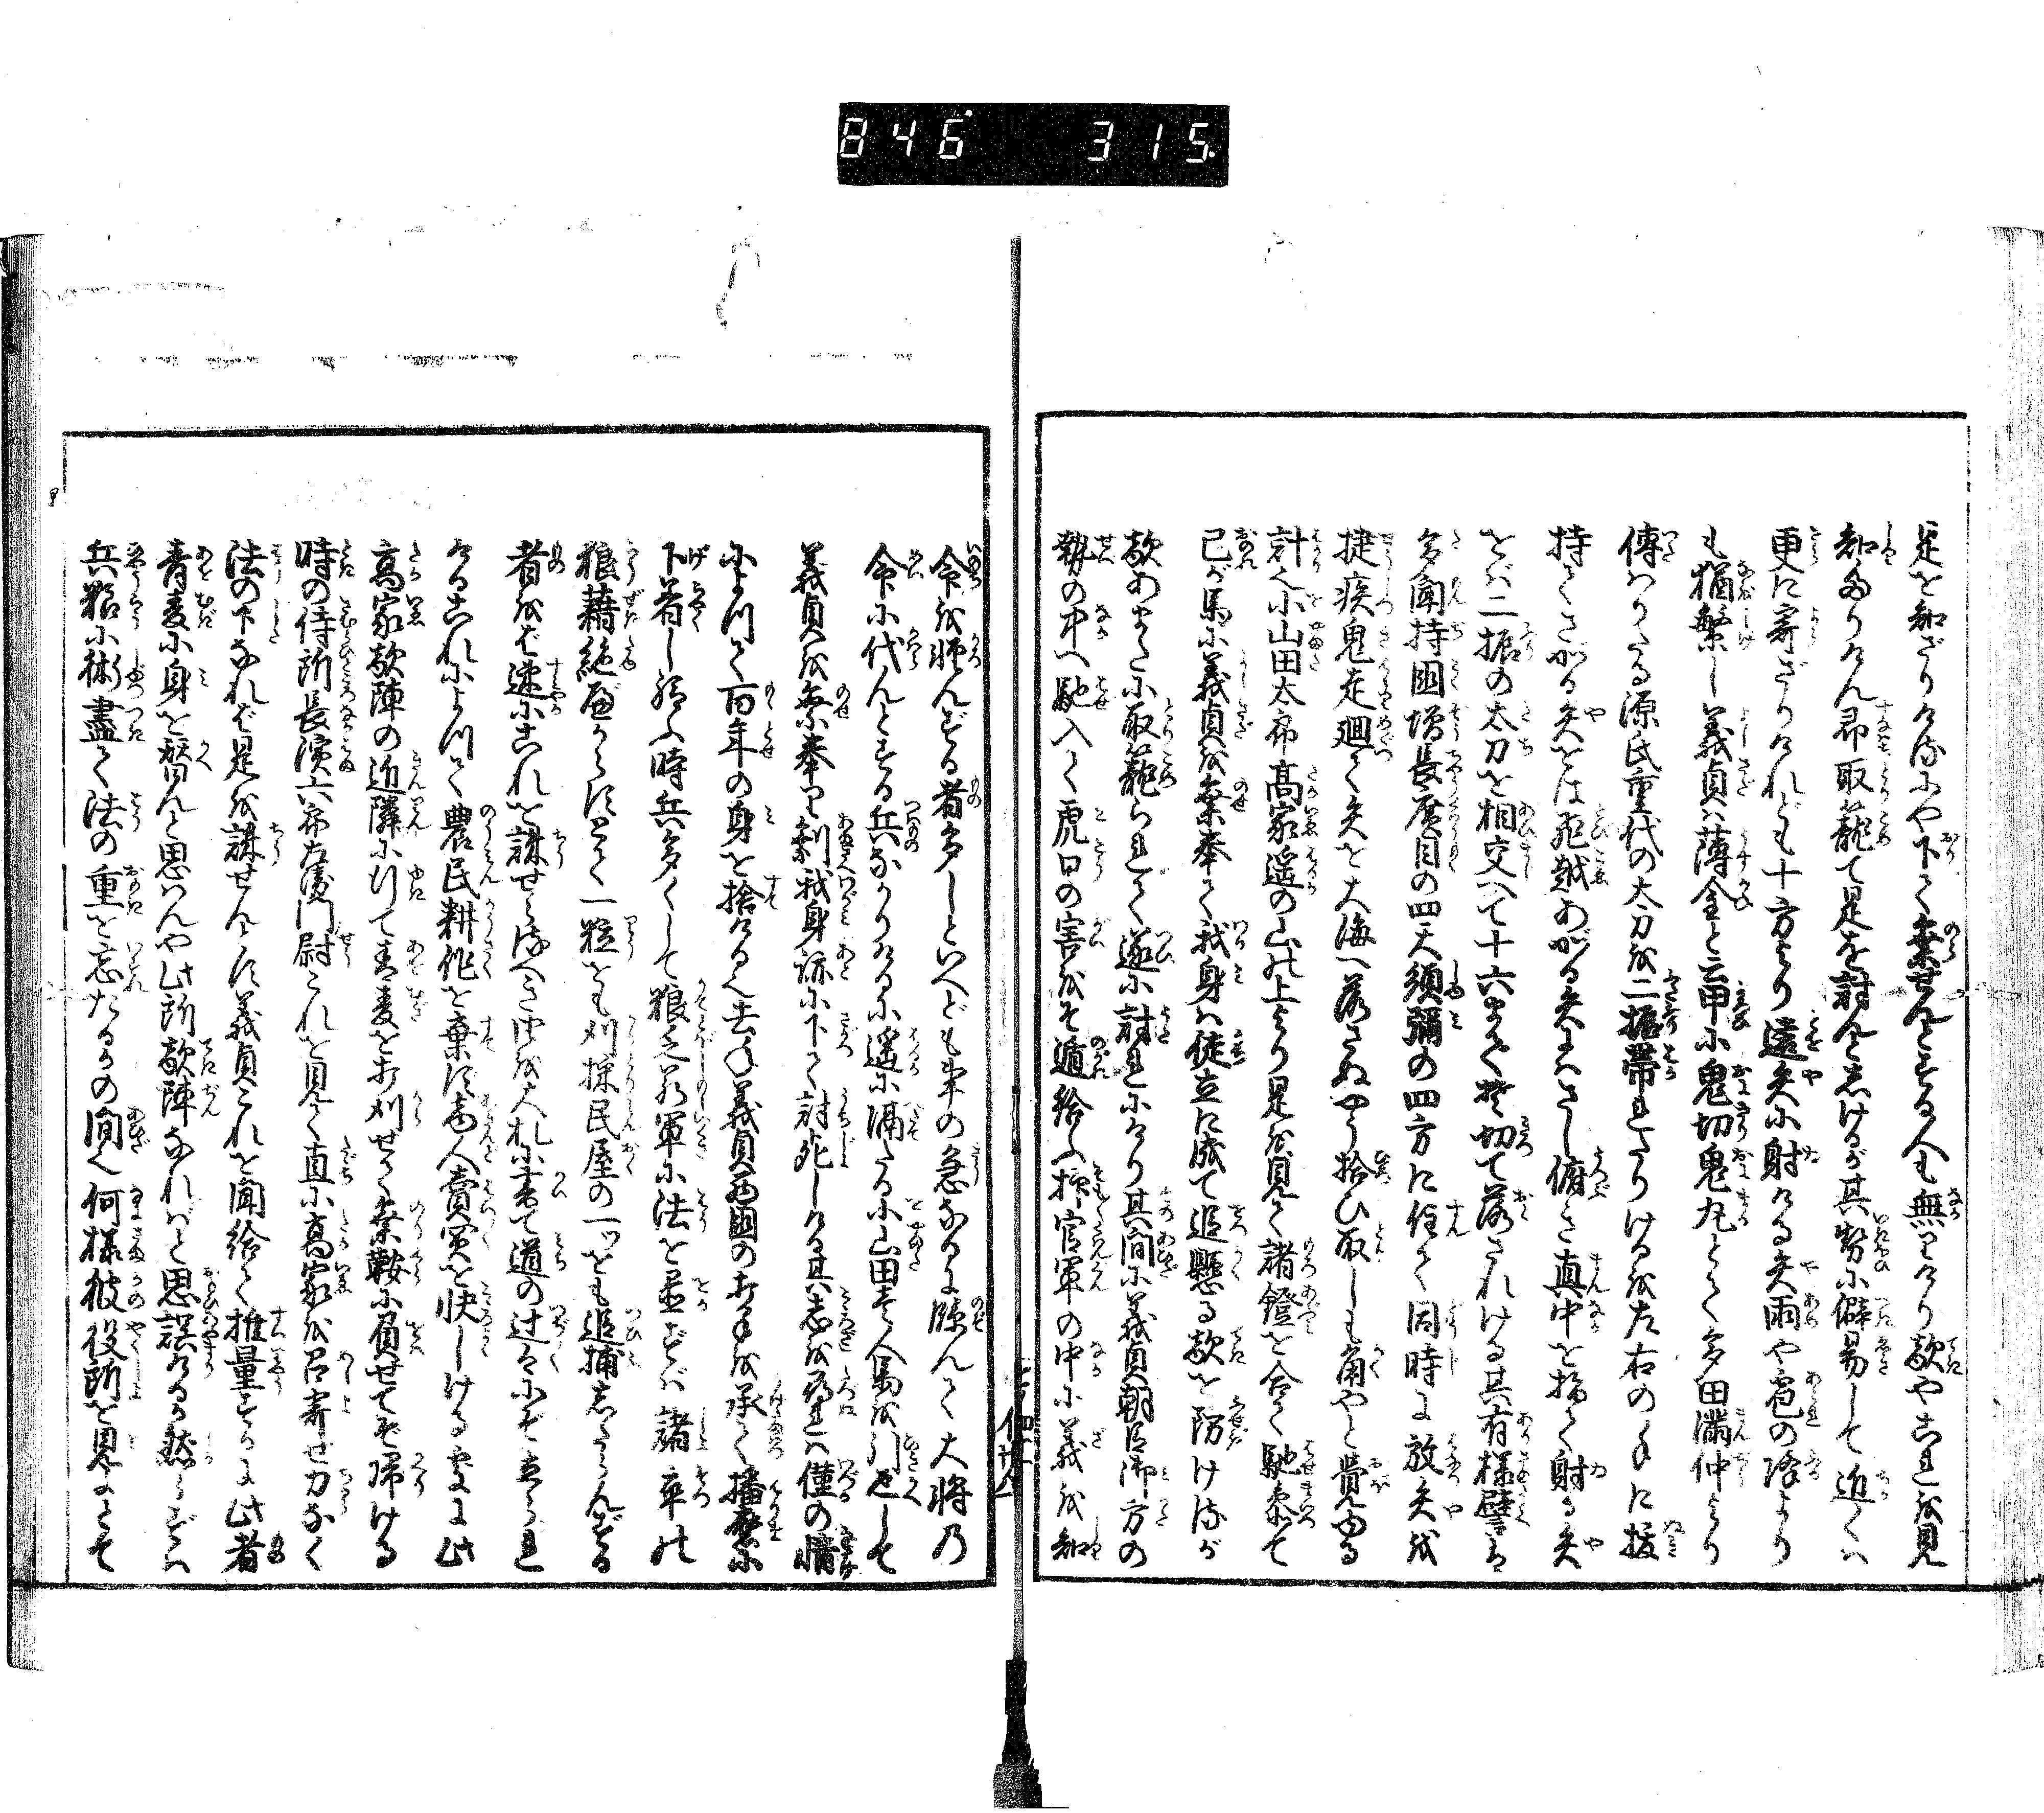 846 315
是を知ざりけるにや下て乗せんとする人も無りけり敵やこれを見
知たりけん即取籠て是を討んとしけるが其勢に僻易して近くは
更に寄ざりけれども十方より遠矢に射ける矢雨や雹の降より
も猶繁し義貞は薄金と云甲に鬼切鬼丸とて多田満仲より
傳はりたる源氏重代の太刀を二振帯れたりけるを左右の手に抜
持てさがる矢をは飛越あがる矢にはさし俯き真中を指て射る矢
をば二振の太刀を相交へて十六まで切て落されける其有様譬ば
多聞持國増長廣目の四天須彌の四方に住て同時に放矢を
捷疾鬼走廻て矢を大海へ落さぬやう拾ひ取しも角やと覺ゆる
計也小山田太郎高家遥の山の上より是を見て諸鐙を合て馳参て
己が馬に義貞を乗奉て我身は徒立に成て追懸る敵を防けるが
敵あまたに取籠られて遂に討れにけり其間に義貞朝臣御方の
勢の中へ馳入て虎口の害をそ遁給ふ抑官軍の中に義を知
命を軽んずる者多しといへども事の急なるに臨んで大将の
命に代んとする兵なかりけるに遥に隔たる小山田一人馬を引返して
義貞を乗奉り剰我身跡に下て討死しける其志を尋れは僅の情
によつて百年の身を捨ける也去年義貞西國の打手を承て播磨に
下着し給ふ時兵多くして粮乏若軍に法を置ずば諸卒の
狼藉絶べからずとて一粒をも刈採民屋の一つをも追捕したらんずる
者をば速にこれを誅せらるべき由を大札に書て道の辻々にぞ立られ
けるこれによつて農民耕作を棄ず商人賣買を快しける處に此
高家敵陣の近隣に行て青麦を打刈せて乗鞍に負せてぞ帰ける
時の侍所長濱六郎左衛門尉これを見て直に高家を召寄せ力なく
法の下なれば是を誅せんとす義貞これを聞給て推量するに此者
青麦に身を替んと思はんや此所敵陣なればと思誤けるか然らずは
兵粮に術盡て法の重を忘たるかの間也何様彼役所を見よとて